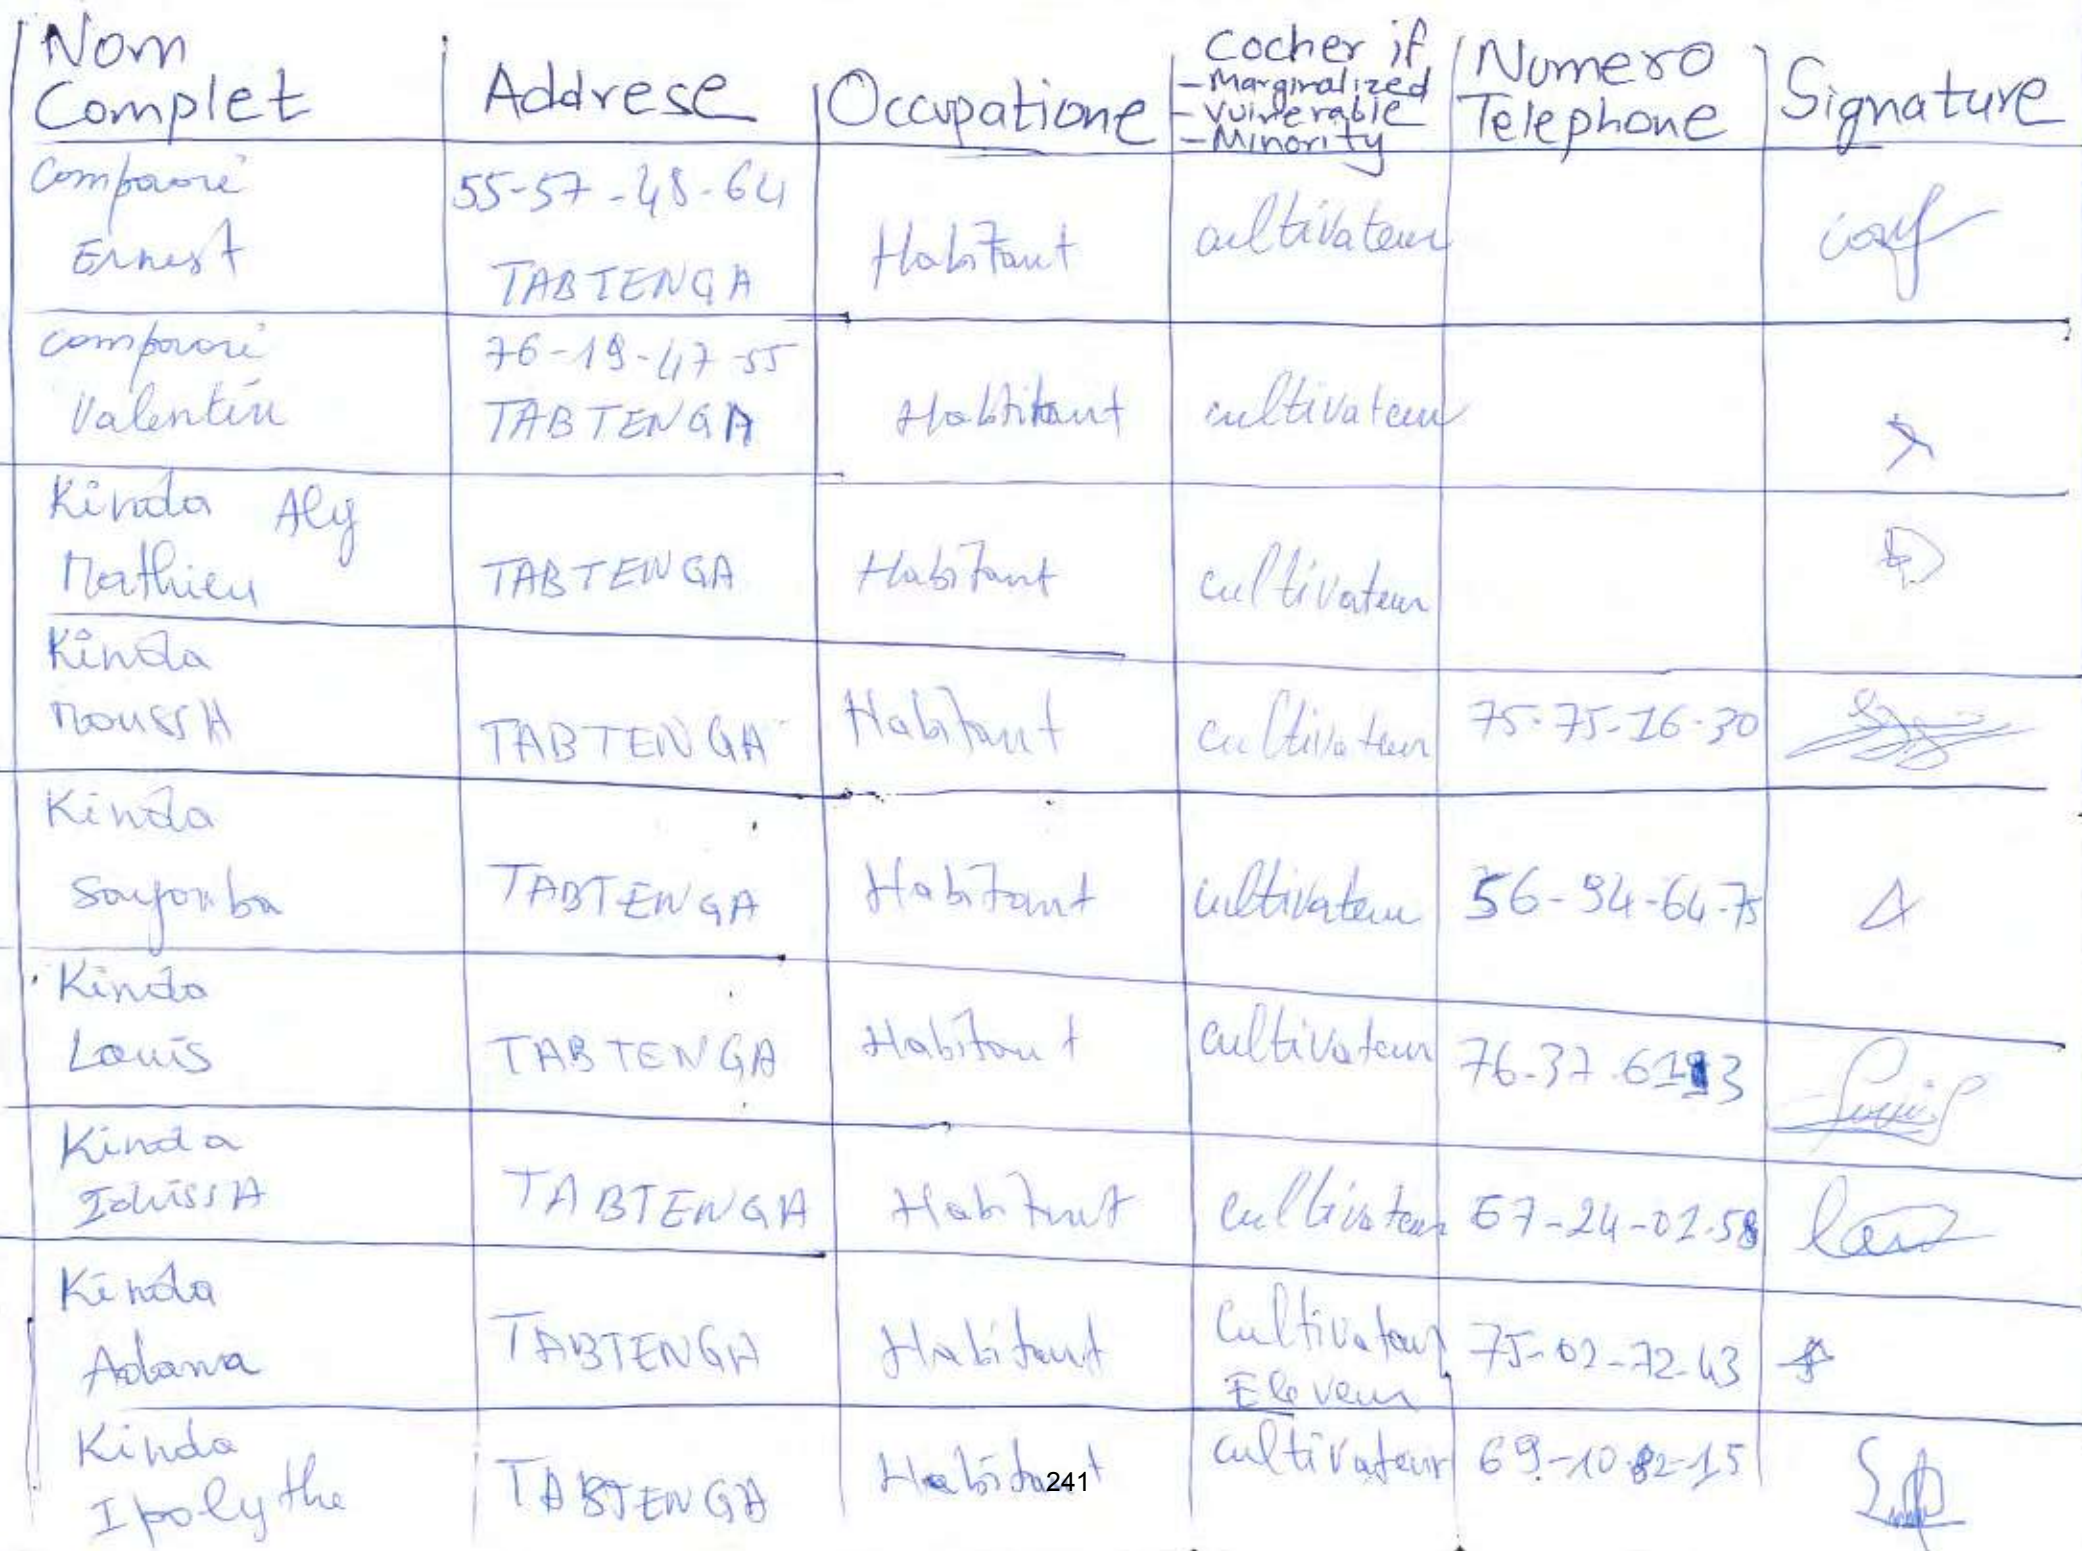 Nom
Complet
Addrese
Occupatione
Cocher if
- Marginalized
- Vulnerable
- Minority
Numero
Telephone
Signature
Compaoré
Ernest
55-57-48-64
TABTENGA
Habitant
cultivateur
Compaoré
Valentin
76-19-47-55
TABTENGA
Habitant
cultivateur
Kinda Aly
Mathieu
TABTENGA
Habitant
cultivateur
Kinda
MoussA
TABTENGA
Habitant
cultivateur
75-75-16-30
Kinda
TABTENGA
Habitant
cultivateur
56-94-64-75
Kinda
Louis
TABTENGA
Habitant
cultivateur
76-37
Louis
Kinda
IdrissA
TABTENGA
Habitant
cultivateur
67-24-01-58
Kinda
Adama
TABTENGA
Habitant
Cultivateur
Eleveur
75-02-72-43
Kinda
Ipolythe
TABTENGA
Habitant
cultivateur
69-10-82-15
241